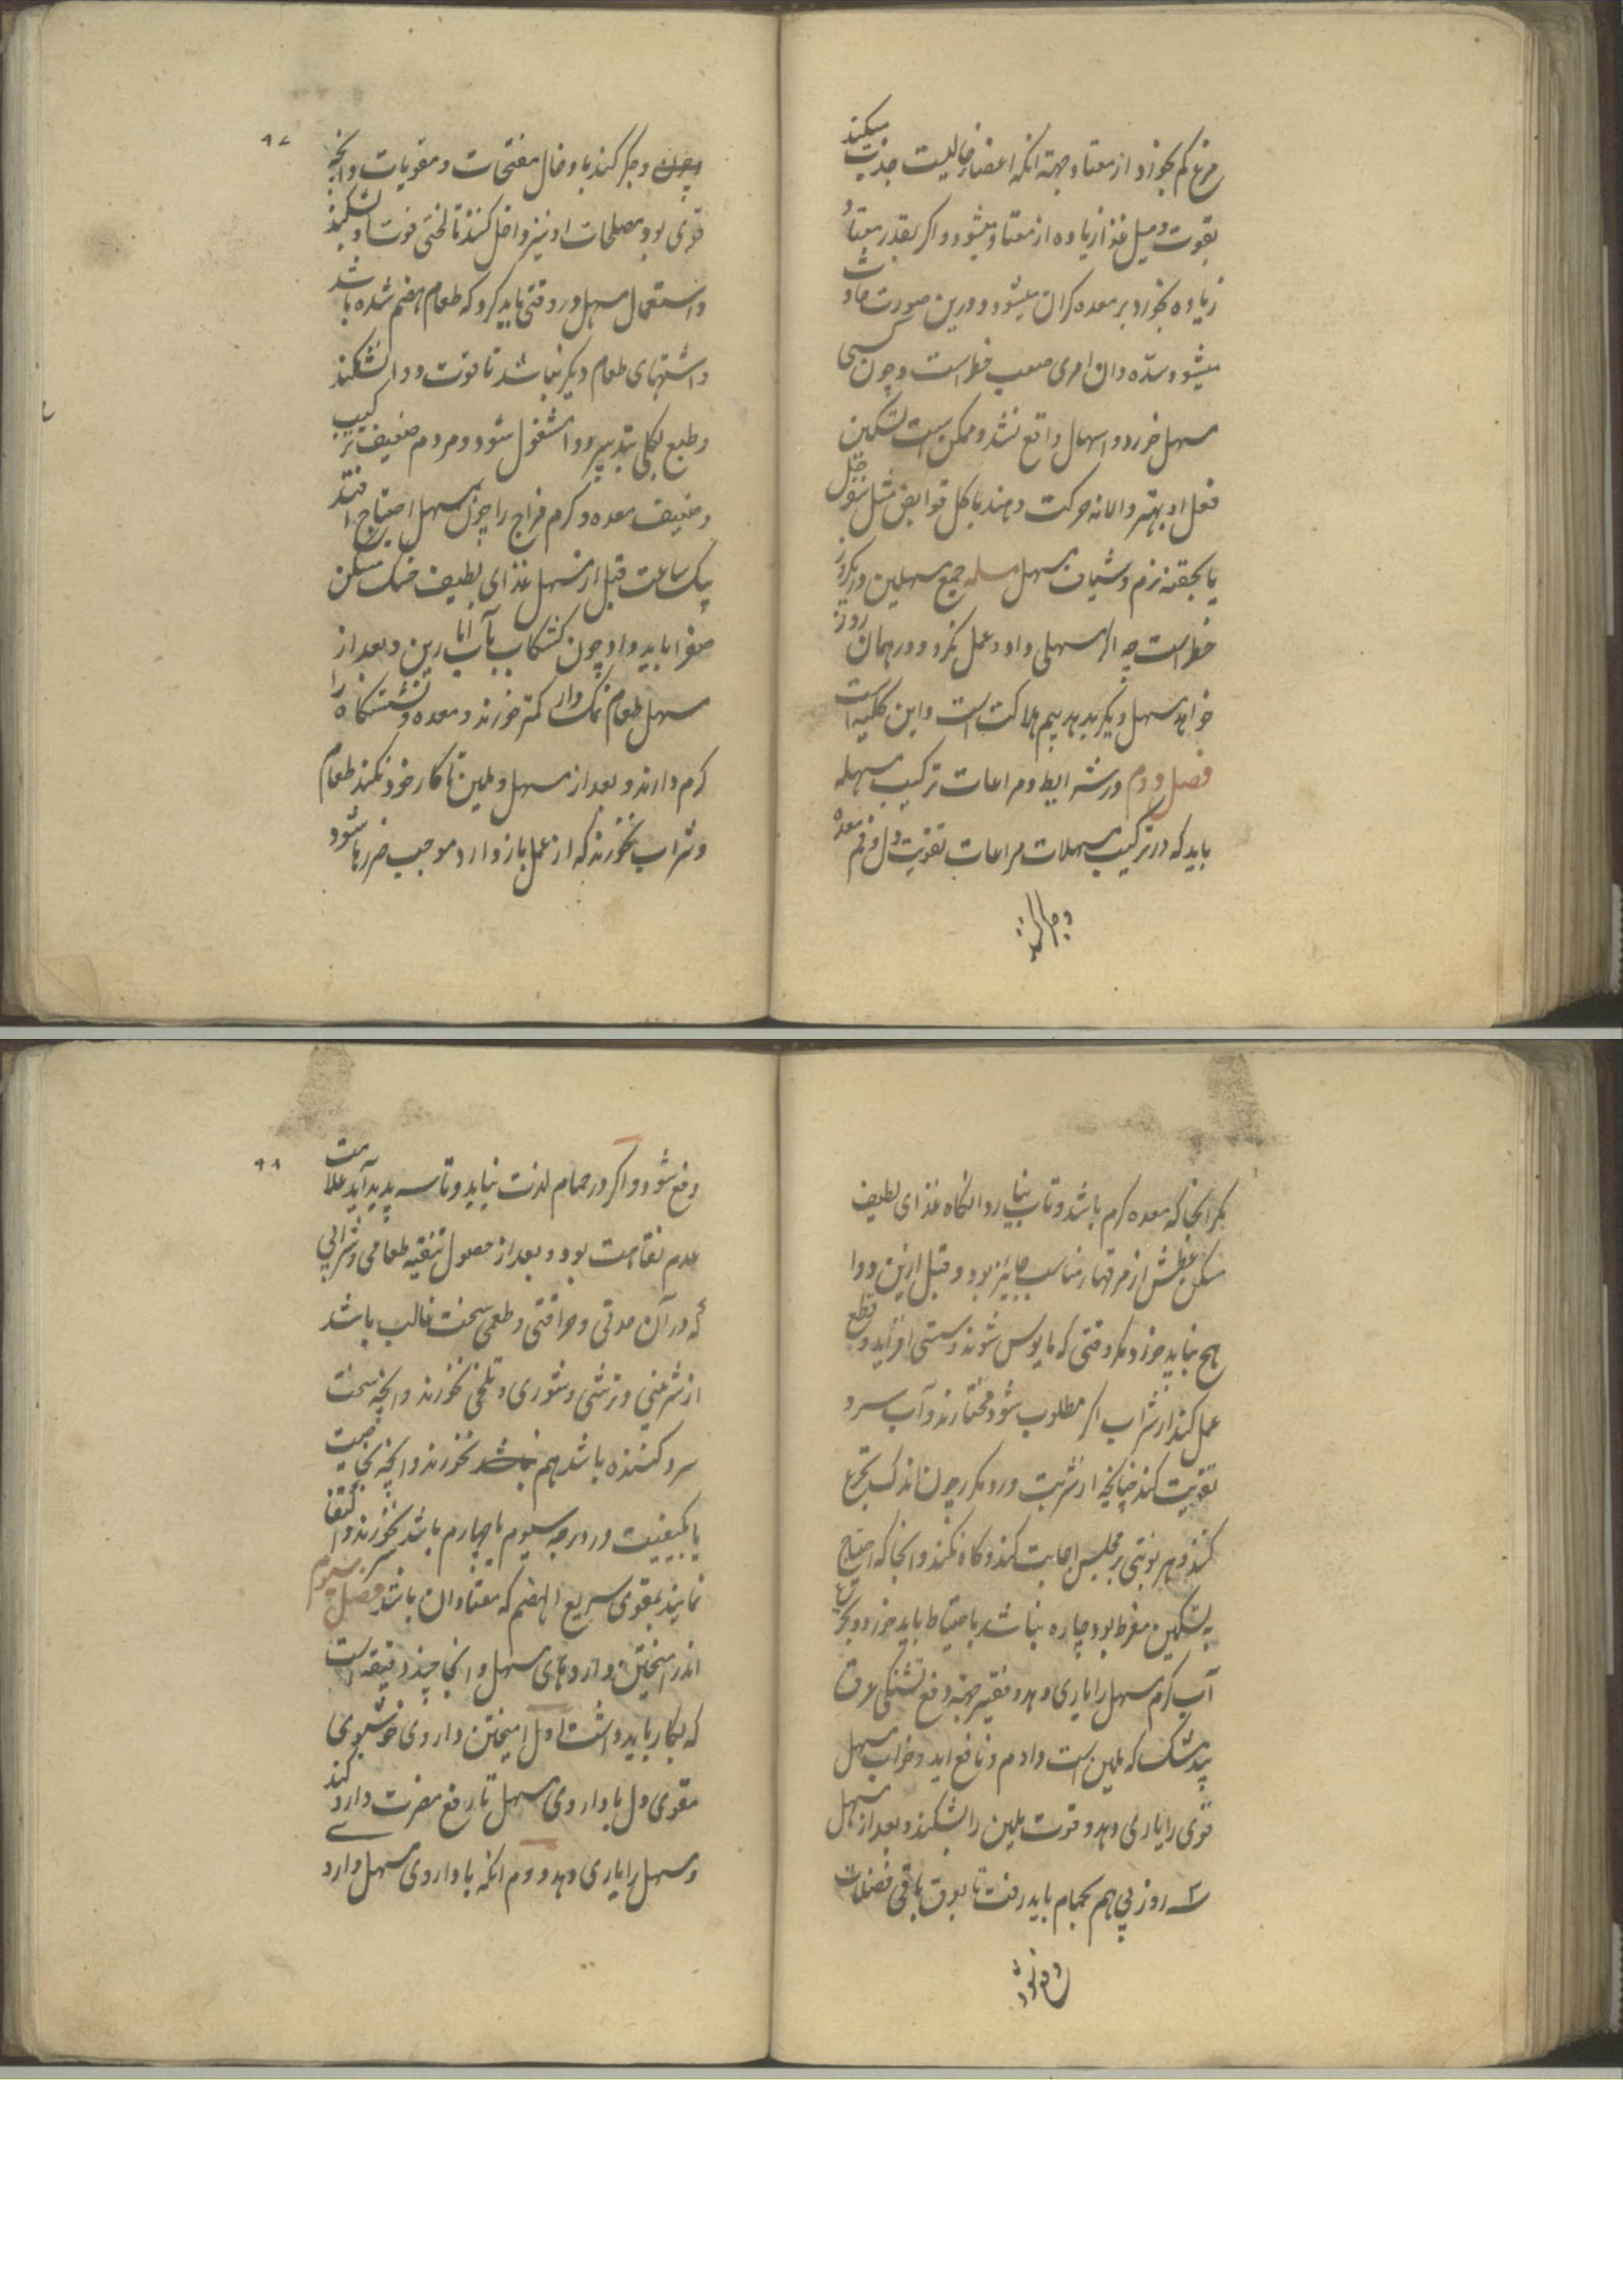 مرغ کم بخورد از معتاد جهة انکه اعضا خالیست جذب میکند
بقوت و میل غذا زیاده از معتاد میشود و اکر بقدر معتاد
زیاده بخورد بر معده کران میشود و درین صورت حادث
میشود سده و ان امری صعب خطر است و چون کسی
مسهل خورد و اسهال واقع نشد و ممکن است تسکین
فعل او بهتر و الا نه حرکت دهند باکل قوابض مثل سفرجل
یا بحقنه نرم و شیاف مسهل مسله جمع مسهلین در یکروز
خطر است چه اکر مسهلی داد و عمل نکرد و در همان روز
خواهد مسهل دیکر بدهد بیم هلاکت است و این کلیه است
فصل دوم در شرایط و مراعات ترکیب مسهله
باید که در ترکیب مسهلات مراعات تقویت دل و فم معده
و جکر کنند
۹۷
و جکر کنند بادخال مفتحات و مقویات و انچه
قوی بود مصلحات او نیز داخل کنند تا لختی قوت او بشکند
و استعمال مسهل در وقتی باید کرد که طعام هضم شده باشد
و اشتهای طعام دیکر نباشد تا قوت دوا نشکند
و طبع بکلی بتدبیر دوا مشغول شود و مردم ضعیف ترکیب
و ضعیف معده و کرم مزاج را چون بمسهل احتیاج افتد
یک ساعت قبل از مسهل غذای لطیف خنک مسکن
صفرا باید داد چون کشکاب با آب انارین و بعد از
مسهل طعام نمک دار کمتر خورند و معده و نشستکاه را
کرم دارند و بعد از مسهل و ملین تا کار خود نکند طعام
و شراب نخورند که از عمل باز دارد و موجب ضررها شود
مکر انجا که معده کرم باشد و تاب نیارد انکاه غذای لطیف
مسکن عطش از مرقها مناسب جایز بود و قبل ازین دوا
هیچ نباید خورد مکر وقتی که مایوس شوند و سستی افزاید و قطع
عمل کند از شراب اکر مطلوب شود مختارند و آب سرد
تقویت کند چنانچه از شربت ورد مکرر چون اندک تجرع
کنند و هر نوبتی بر مجلس اجابت کند و کاه نکند و انجا که احتیاج
به تسکین مفرط بود و چاره نباشد باحتیاط باید خورد و تجرع
آب کرم مسهل را یاری دهد و فقیر جهة دفع تشنکی عرق
بیدمشک که ملین است دادم و نافع اید و خواب مسهل
قوی را یاری دهد و قوت ملین را بشکند و بعد از مسهل
سه روز پی هم بحمام باید رفت تا بعرق باقی فضلات
دفع شود
۹۸
دفع شود و اکر در حمام لذت نیابد و تاسه پدید آید علامت
عدم نقاهت بود و بعد از حصول تنقیه طعامی و شرابی
که در آن حدتی و حراقتی و طعمی سخت غالب باشد
از شیرینی و ترشی و شوری و تلخی نخورند و انچه سخت
سرد کننده باشد هم نخورند و انچه بخاصیت
یا بکیفیت در درجه سیوم یا چهارم باشد نخورند و اکتفا
نمایند بمقوی سریع الهضم که معتاد ان باشند فصل سیوم
اندر امیختن داروهای مسهل و انجا چند دقیقه است
که بکار باید داشت اول امیختن داروی خوشبوی
مقوی دل با داروی مسهل تا دفع مضرت دارو کند
و مسهل را یاری دهد دوم انکه با داروی مسهل دارد